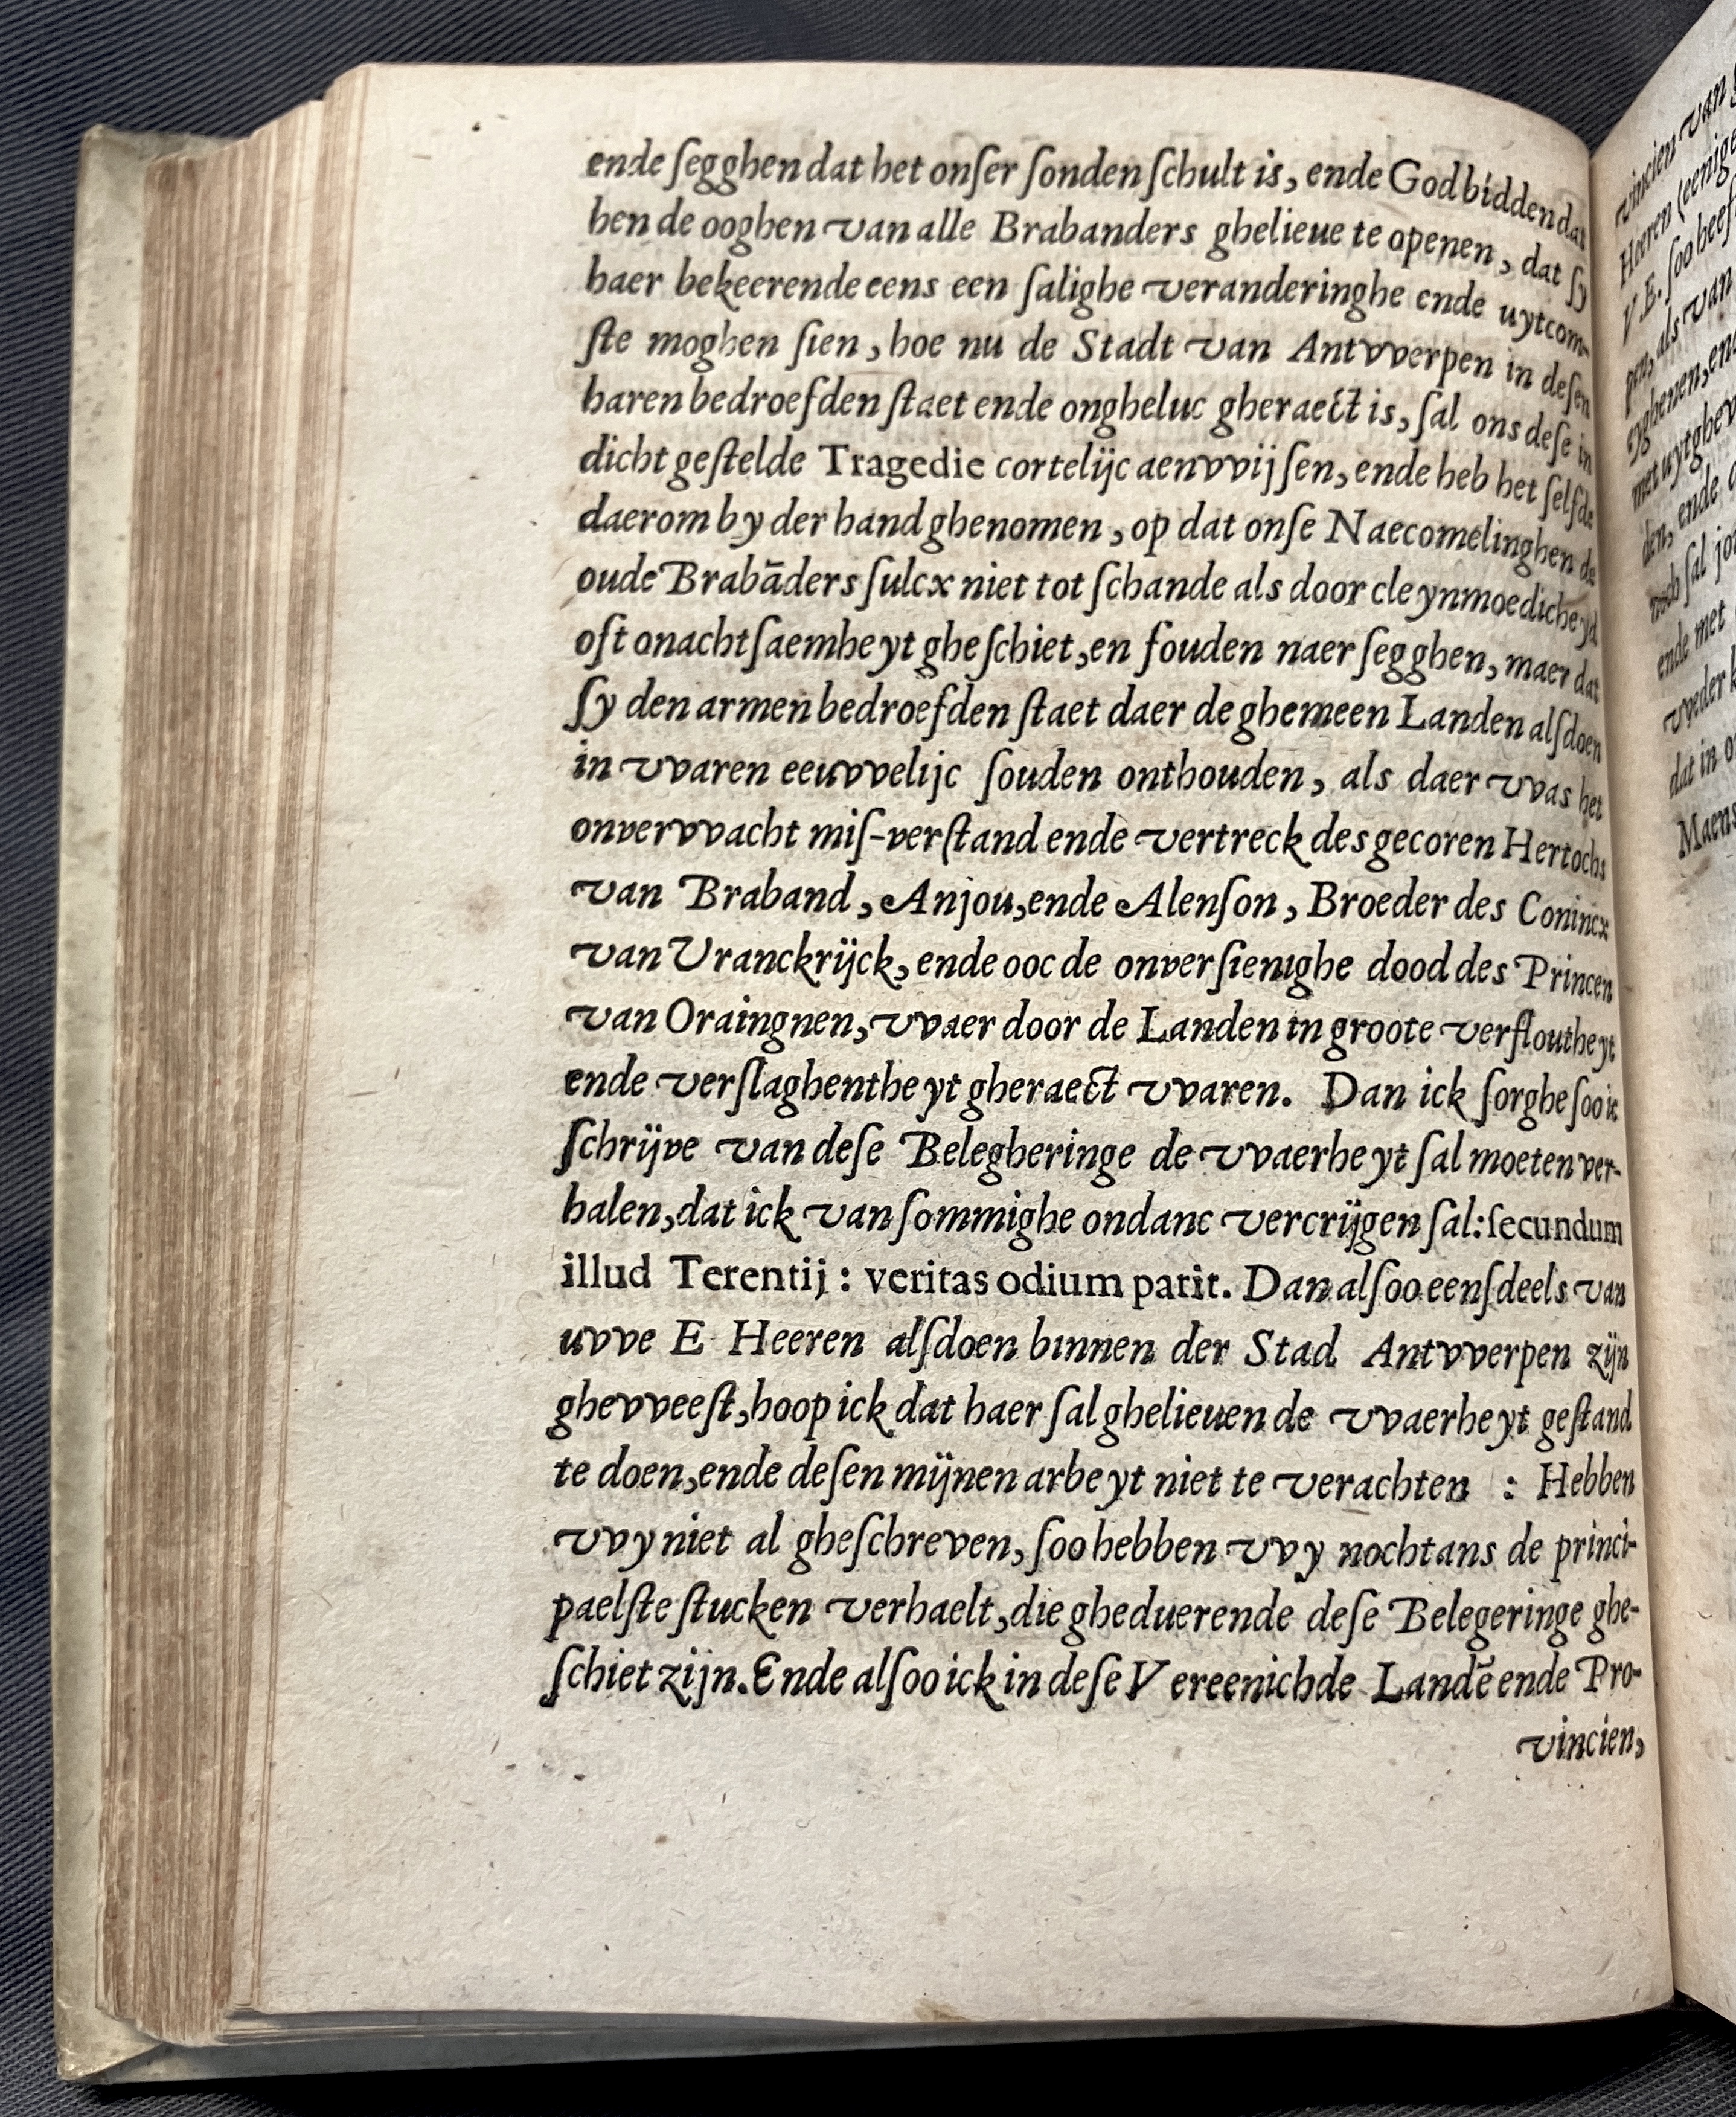 ende ſegghen dat het onſer ſonden ſchult is, ende God bidden dat
hen de ooghen van alle Brabanders ghelieue te openen, dat ſy
haer bekeerende eens een ſalighe veranderinghe ende uytcom-
ſte moghen ſien, hoe nu de Stadt van Antvverpen in deſen
haren bedroefden ſtaet ende ongheluc gheraect is, ſal ons deſe in
dicht geſtelde Tragedie cortelijc aenvvijſen, ende heb het ſelfde
daerom by der hand ghenomen, op dat onſe Naecomelinghen de
oude Brabāders ſulcx niet tot ſchande als door cleynmoedicheyd
oft onachtſaemheyt gheſchiet, en ſouden naer ſegghen, maer dat
ſy den armen bedroefden ſtaet daer de ghemeen Landen alſdoen
in vvaren eeuvvelijc ſouden onthouden, als daer vvas het
onvervvacht miſ-verſtand ende vertreck des gecoren Hertochs
van Braband, Anjou, ende Alenſon, Broeder des Conincx
van Vranckrijck, ende ooc de onverſienighe dood des Princen
van Oraingnen, vvaer door de Landen in groote verfloutheyt
ende verſlaghentheyt gheraect vvaren. Dan ick ſorghe ſoo ic
ſchrijve van deſe Belegheringe de vvaerheyt ſal moeten ver-
halen, dat ick van ſommighe ondanc vercrijgen ſal: ſecundum
illud Terentij: veritas odium parit. Dan alſoo eenſdeels van
uvve E Heeren alſdoen binnen der Stad Antvverpen zijn
ghevveeſt, hoop ick dat haer ſal ghelieuen de vvaerheyt geſtand
te doen, ende deſen mijnen arbeyt niet te verachten : Hebben
vvy niet al gheſchreven, ſoo hebben vvy nochtans de princi-
paelſte ſtucken verhaelt, die gheduerende deſe Belegeringe ghe-
ſchiet zijn. Ende alſoo ick in deſe Vereenichde Landē ende Pro-
vincien,
vincien van
Heeren (eenige
V.E. ſoo heef
pen, als van
met uytghev
den, ende
noch ſal
ende met
vveder
dat in
Maens